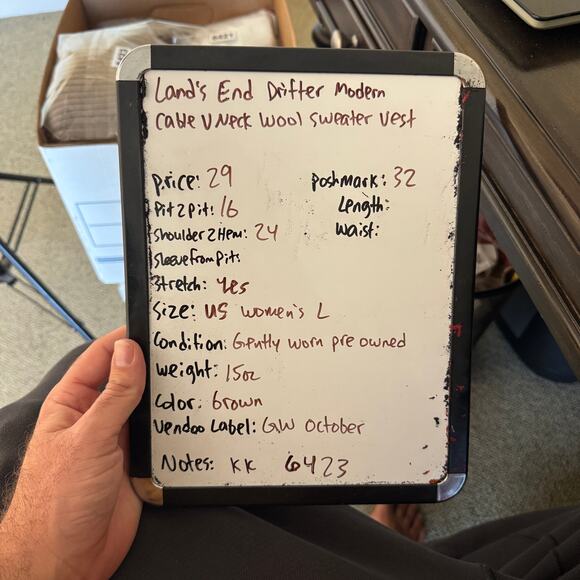 Land's End Drifter Modern
Cable V Neck Wool Sweater Vest
Price: 29
Poshmark: 32
Pit 2 Pit: 16
Length:
Shoulder 2 Hem: 24
Waist:
Sleeve from Pit:
Stretch: Yes
Size: US Women's L
Condition: Gently worn pre owned
Weight: 15oz
Color: brown
Vendoo Label: GW October
Notes: KK 6423